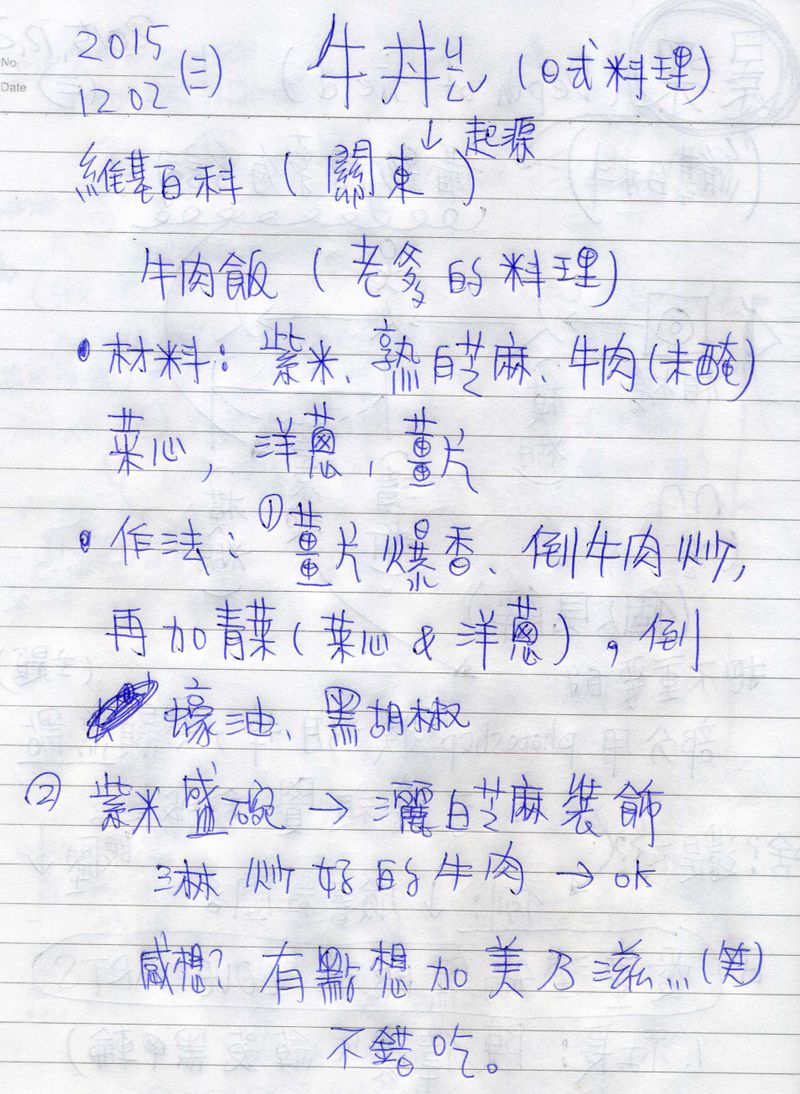 No
Date
2015
1202 (三) 牛丼ㄐㄧㄥˇ (日式料理)
↓起源
維基百科 (關東)
牛肉飯 (老爹的料理)
• 材料: 紫米、熟白芝麻、牛肉(未醃)
菜心, 洋蔥, 薑片
• 作法: ①薑片爆香、倒牛肉炒,
再加青菜(菜心 & 洋蔥), 倒
蠔油、黑胡椒
② 紫米盛碗 → 灑白芝麻裝飾
淋炒好的牛肉 → OK
感想? 有點想加美乃滋...(笑)
不錯吃。